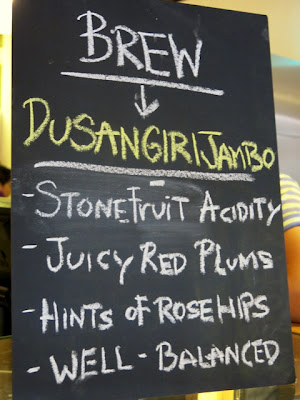 BREW
↓
DUSANGIRIJAMBO
- STONEFRUIT ACIDITY
- JUICY RED PLUMS
- HINTS OF ROSEHIPS
- WELL-BALANCED